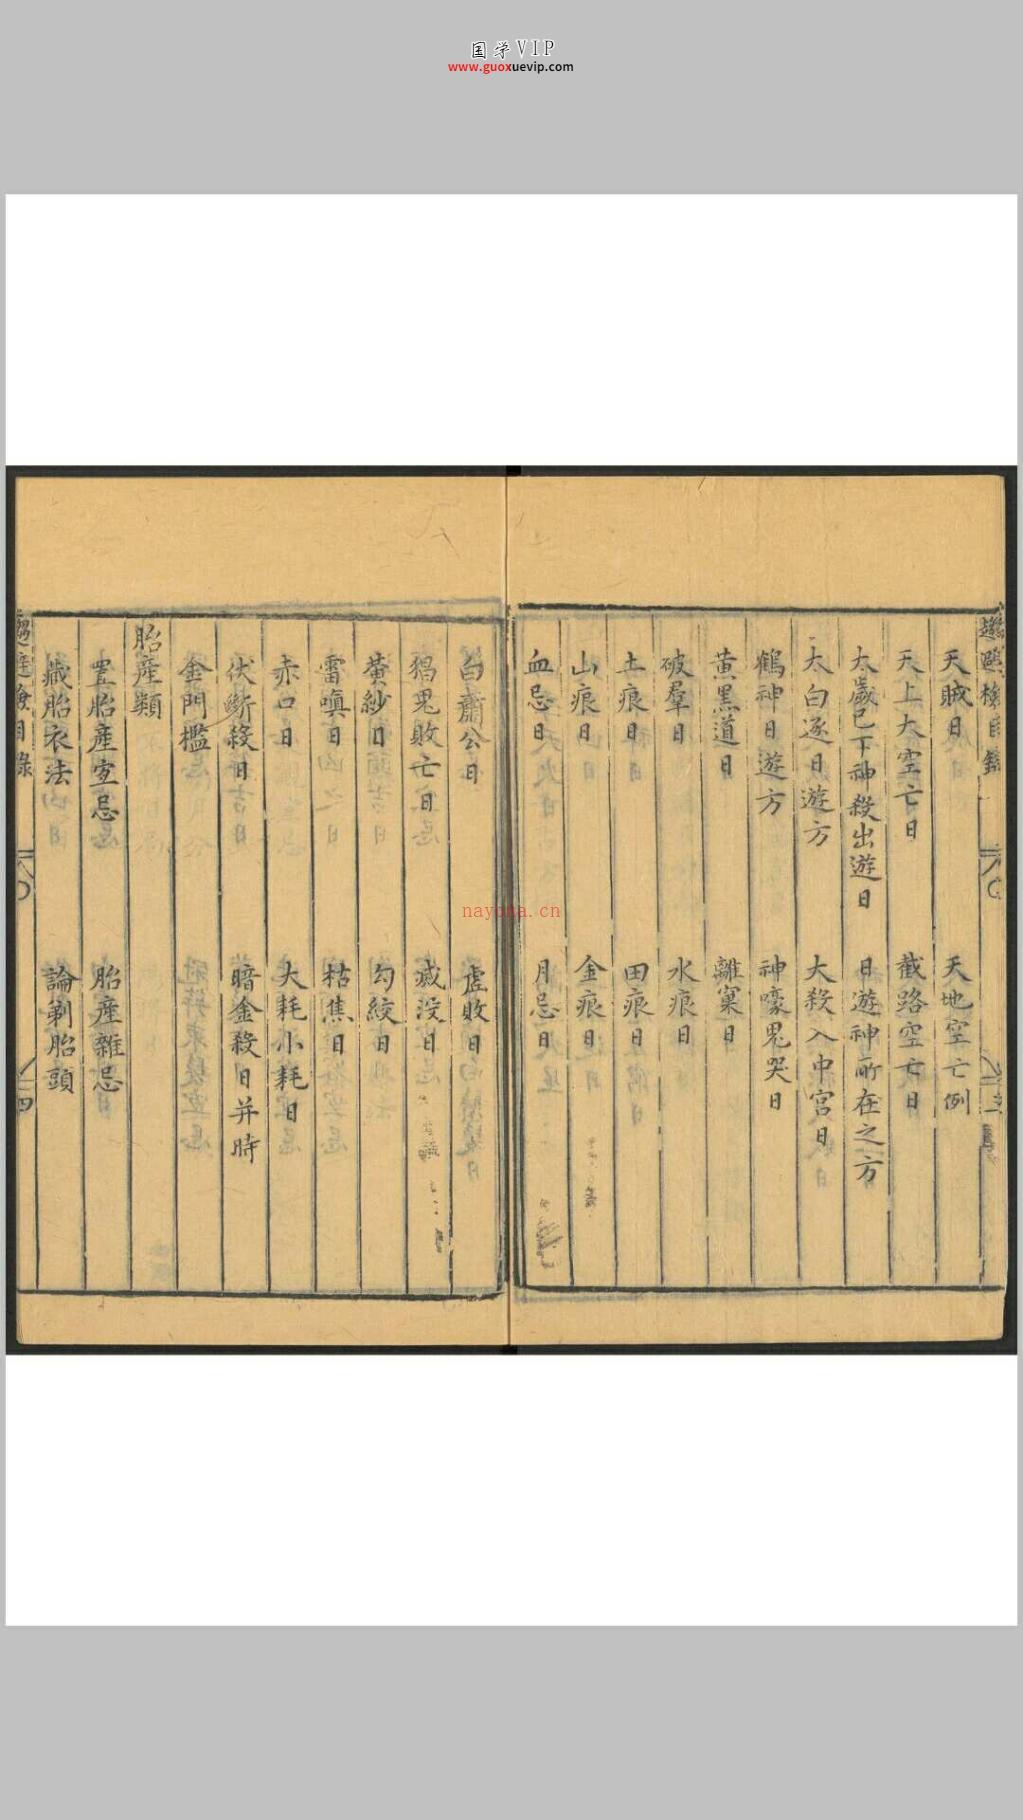 国学VIP
www.guoxuevip.com
天賊日 天地空亡例
天上大空亡日 截路空亡日
太歲已下神殺出遊日 日遊神所在之方
太白逐日遊方 大殺入中宮日
鶴神日遊方 神嚎鬼哭日
黃黑道日 離窠日
破羣日 水痕日
土痕日 田痕日
山痕日 金痕日
血忌日 月忌日
nayona.cn
白蕭公日 虛敗日
猖鬼敗亡日 滅没日
黄紗日 勾絞日
雷嗔日 枯焦日
赤口日 大耗小耗日
伏斷殺日 暗金殺日并時
金門檻
胎産類
置胎產室忌 胎産雜忌
藏胎衣法 論剃胎頭